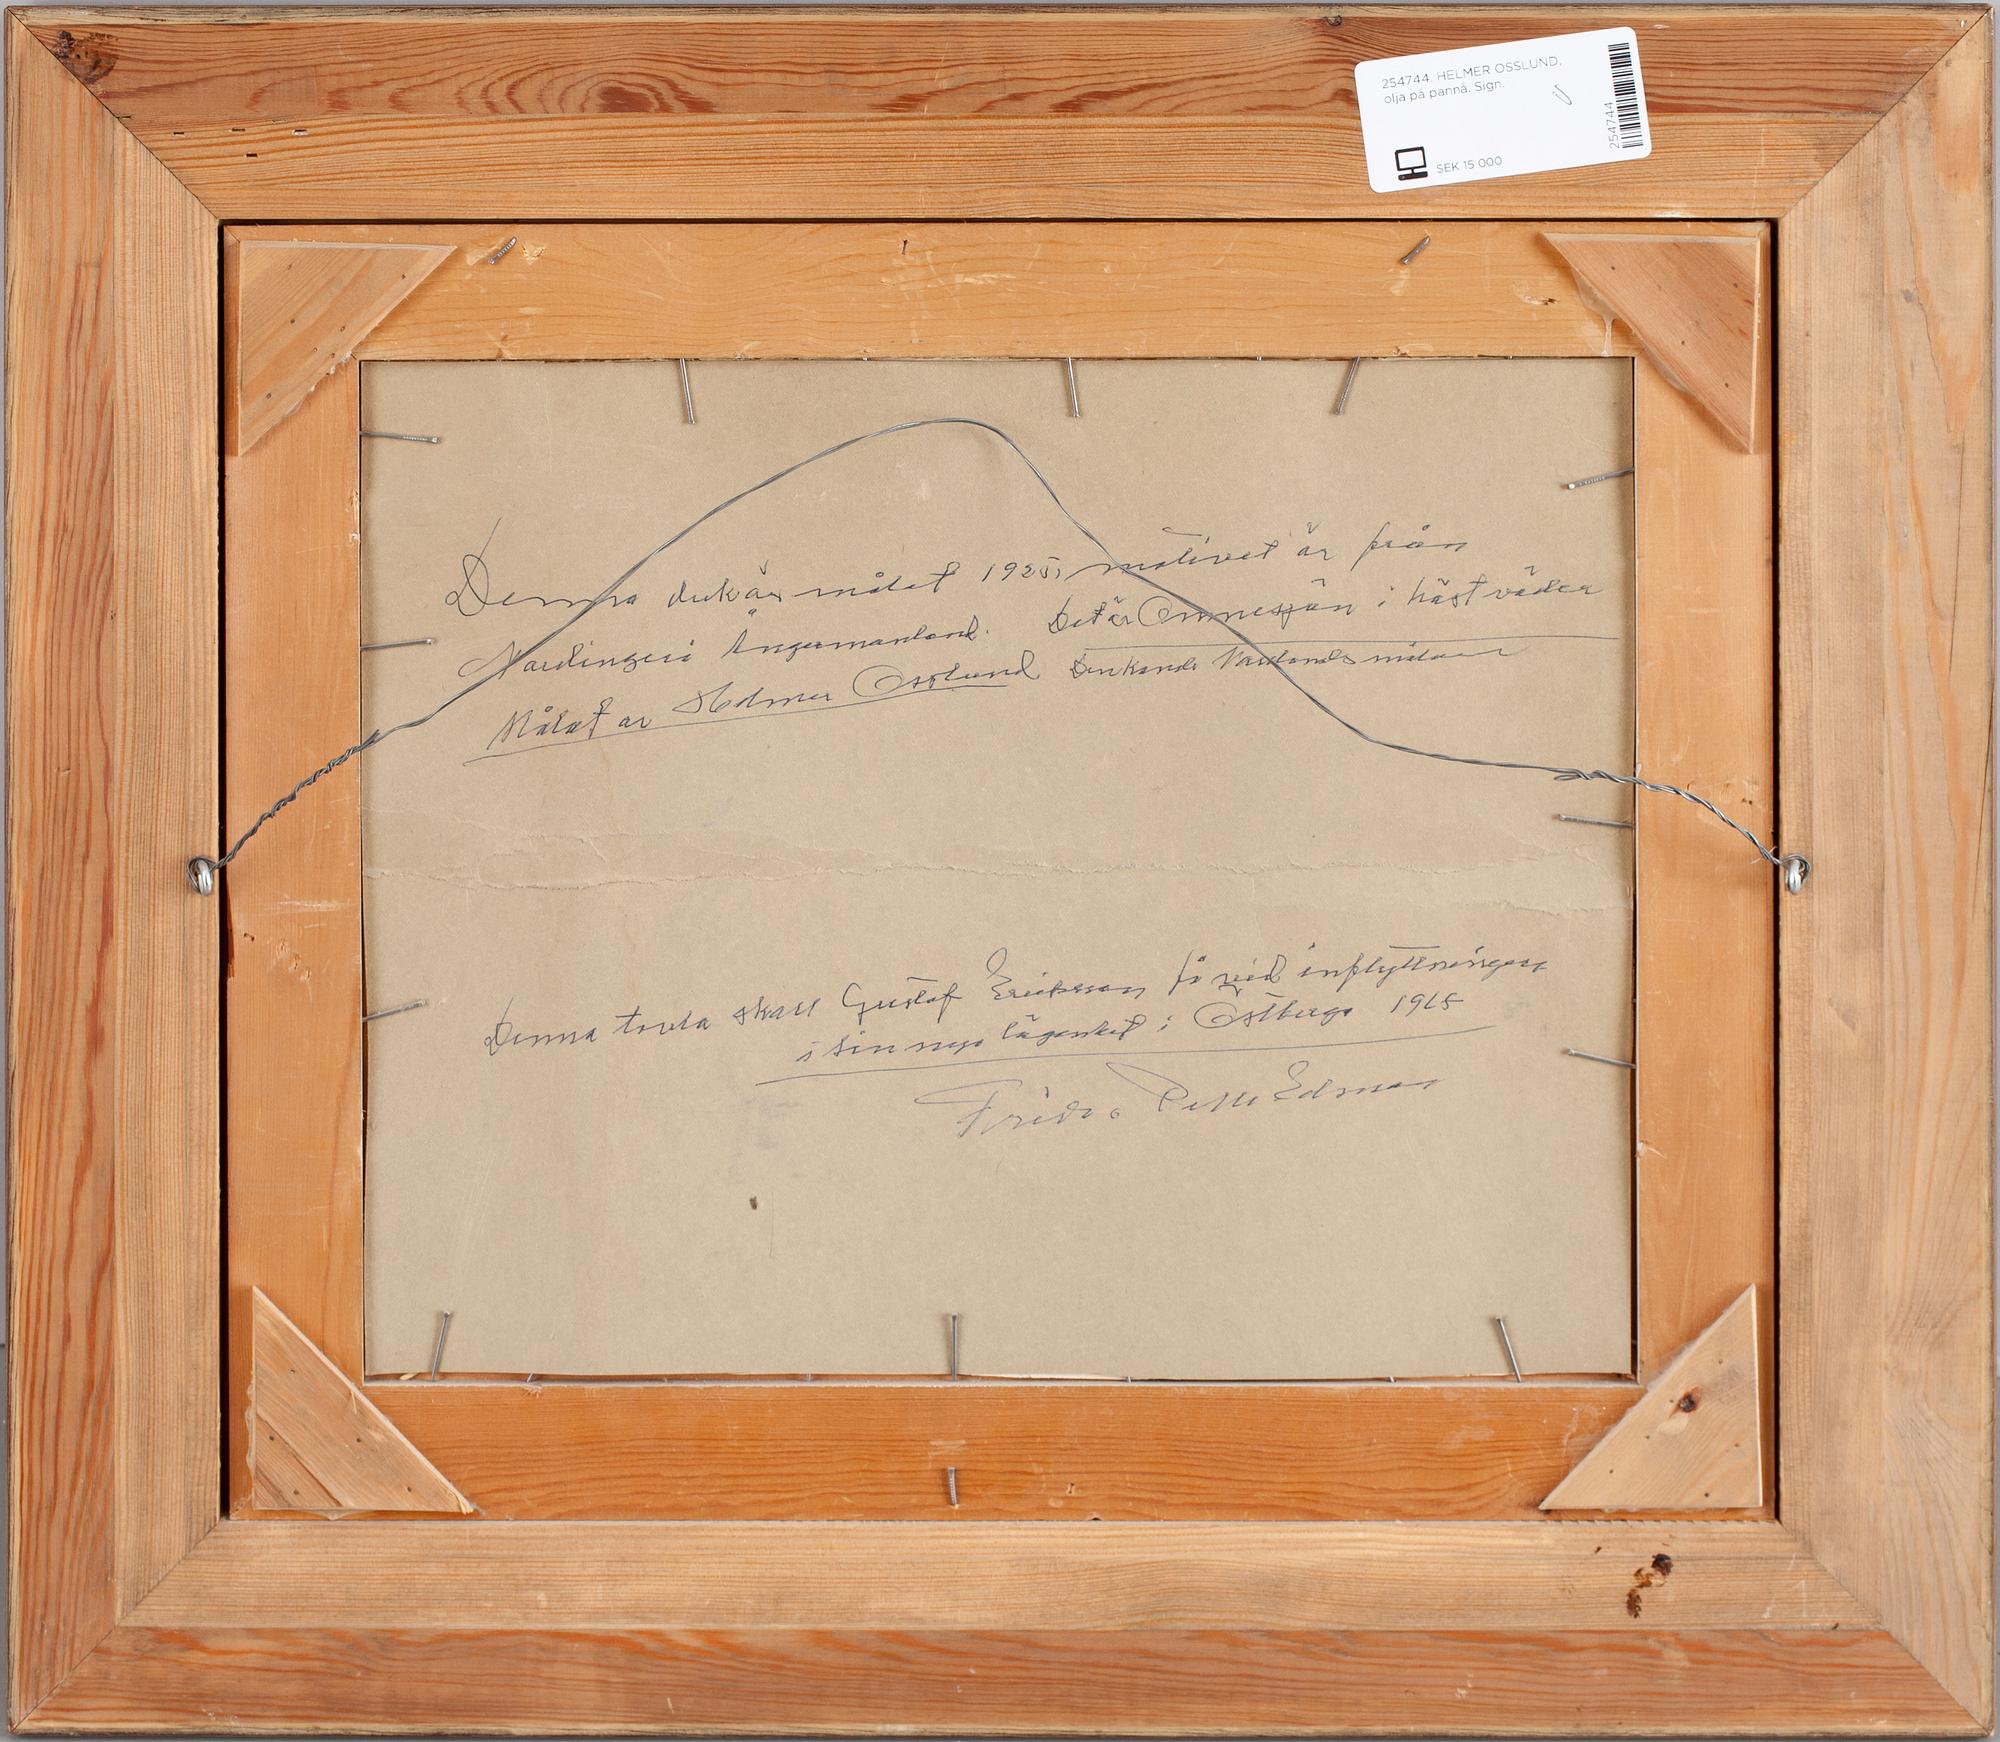 254744. HELMER OSSLUND,
olja på pannå. Sign.
SEK 15 000
254744
Denna duk är målat 1925, motivet är från
Nordingrå i Ångermanland. Det är Omnesjön i höstväder
Målat av Helmer Osslund Den kände Norrlands målaren
Denna tavla skall Gustaf Ericksson få vid inflyttningen
i sin nya lägenhet i Östberga 1965
Frida o Pelle Edman